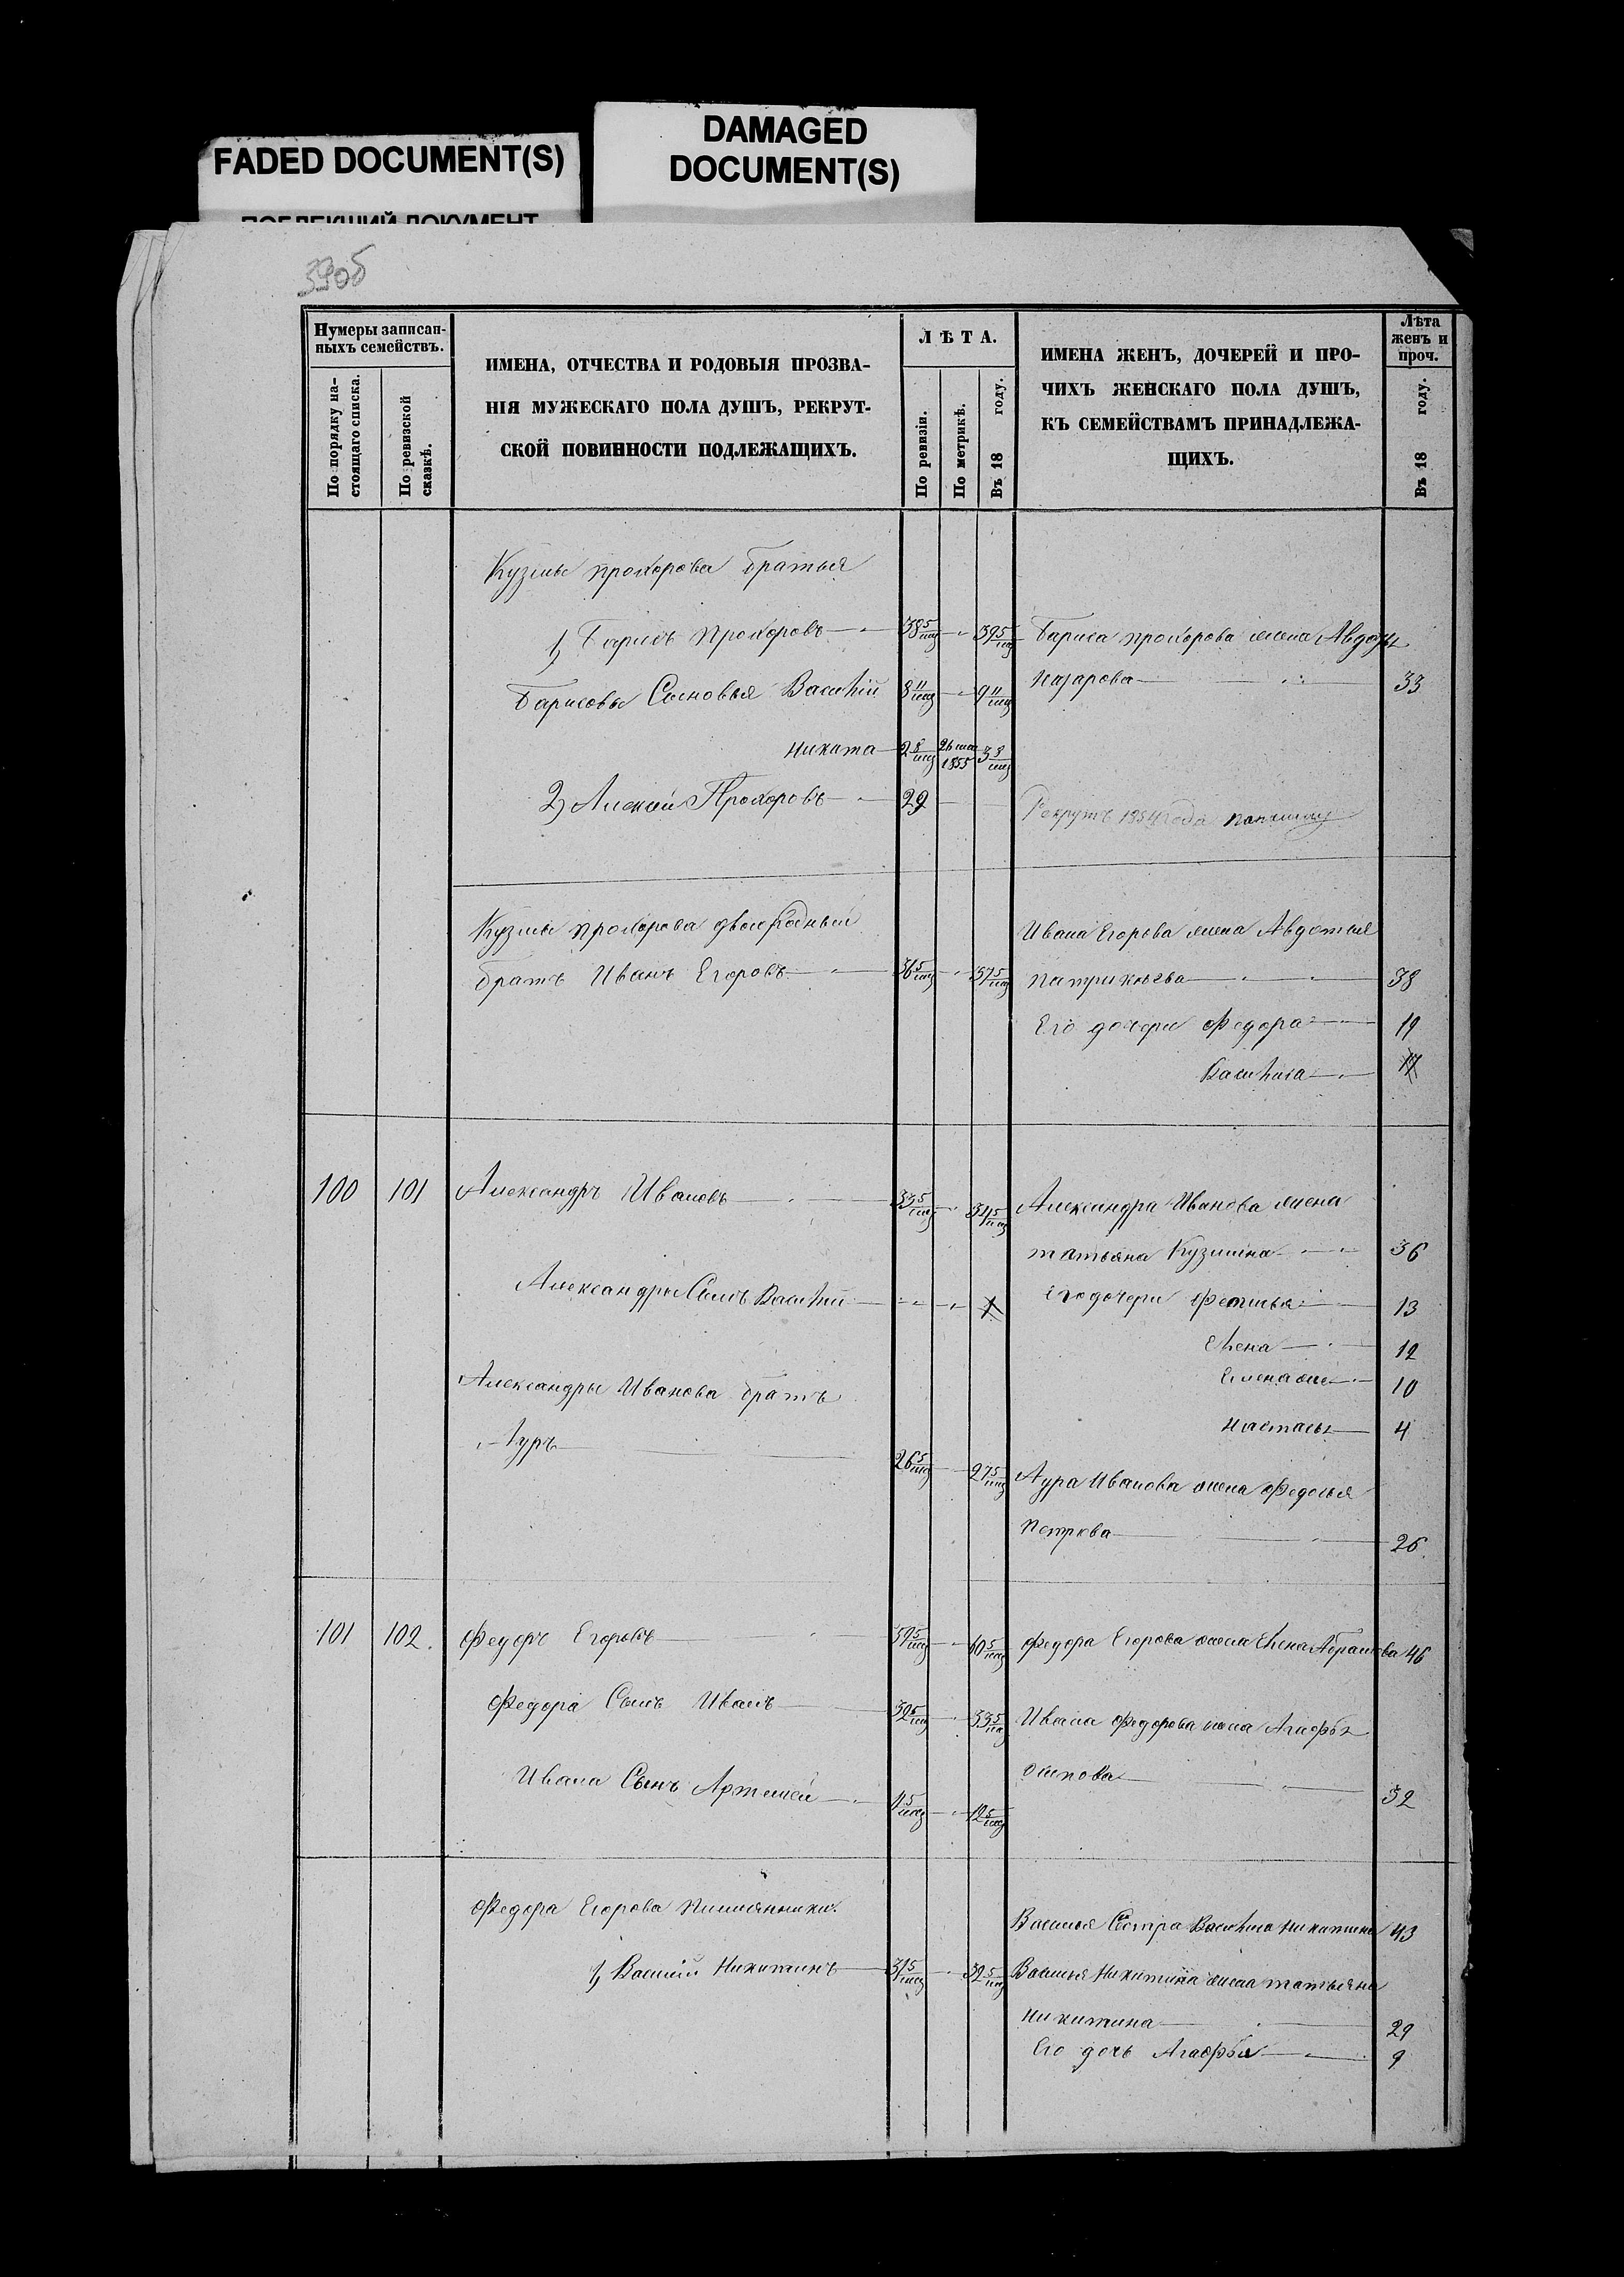 FADED DOCUMENT(S)
DAMAGED
DOCUMENT(S)
ПОБЛЕКШИЙ ДОКУМЕНТ
39об
Нумеры записан-
ныхъ семействъ.
По порядку на-
стоящаго списка.
По ревизской
сказкѣ.
ИМЕНА, ОТЧЕСТВА И РОДОВЫЯ ПРОЗВА-
НІЯ МУЖЕСКАГО ПОЛА ДУШЪ, РЕКРУТ-
СКОЙ ПОВИННОСТИ ПОДЛЕЖАЩИХЪ.
ЛѢТА.
По ревизіи.
По метрикѣ.
Въ 18 году.
ИМЕНА ЖЕНЪ, ДОЧЕРЕЙ И ПРО-
ЧИХЪ ЖЕНСКАГО ПОЛА ДУШЪ,
КЪ СЕМЕЙСТВАМЪ ПРИНАДЛЕЖА-
ЩИХЪ.
Лѣта
женъ и
проч.
Въ 18 году.
Кузмы прохорова братья
1, Барисъ Прохоровъ 38 5/мц 39 5/мц Бариса прохорова жена Авдотья
Назарова 33
Барисовы Сыновья Василий 8 11/мц 9 11/мц
Никита 2 8/мц 26 1855 3 8/мц
2, Алексей Прохоровъ 29 Рекрутъ 1854 года
Кузмы прохорова двоюродный
братъ Иванъ Егоровъ 36 5/мц 37 5/мц
Ивана Егорова жена Авдотья
патрикѣева 38
Его дочери Федора 19
Василиса 17
100 101 Александръ Ивановъ 33 5/мц 34 5/мц Александра Иванова жена
татьяна Кузмина 36
Александры Сынъ Василий 1 Его дочери Фетинья 13
Елена 12
10
Настасья 4
Александры Иванова братъ
Гуръ 26 5/мц 27 5/мц Гура Иванова жена Федосья
Петрова 26
101 102. Федоръ Егоровъ 59 5/мц 60 5/мц Федора Егорова жена Елена Абрамова 46
Федора Сынъ Иванъ 32 5/мц 33 5/мц Ивана Федорова жена Агафья
Осипова 32
Ивана Сынъ Артемей 5/мц 12 5/мц
Федора Егорова племянники.
Василья Сестра Василиса Никитина 43
1, Василий Никитинъ 31 5/мц 32 5/мц Василья Никитина жена татьяна
Никитина 29
Его дочь Агафья 9